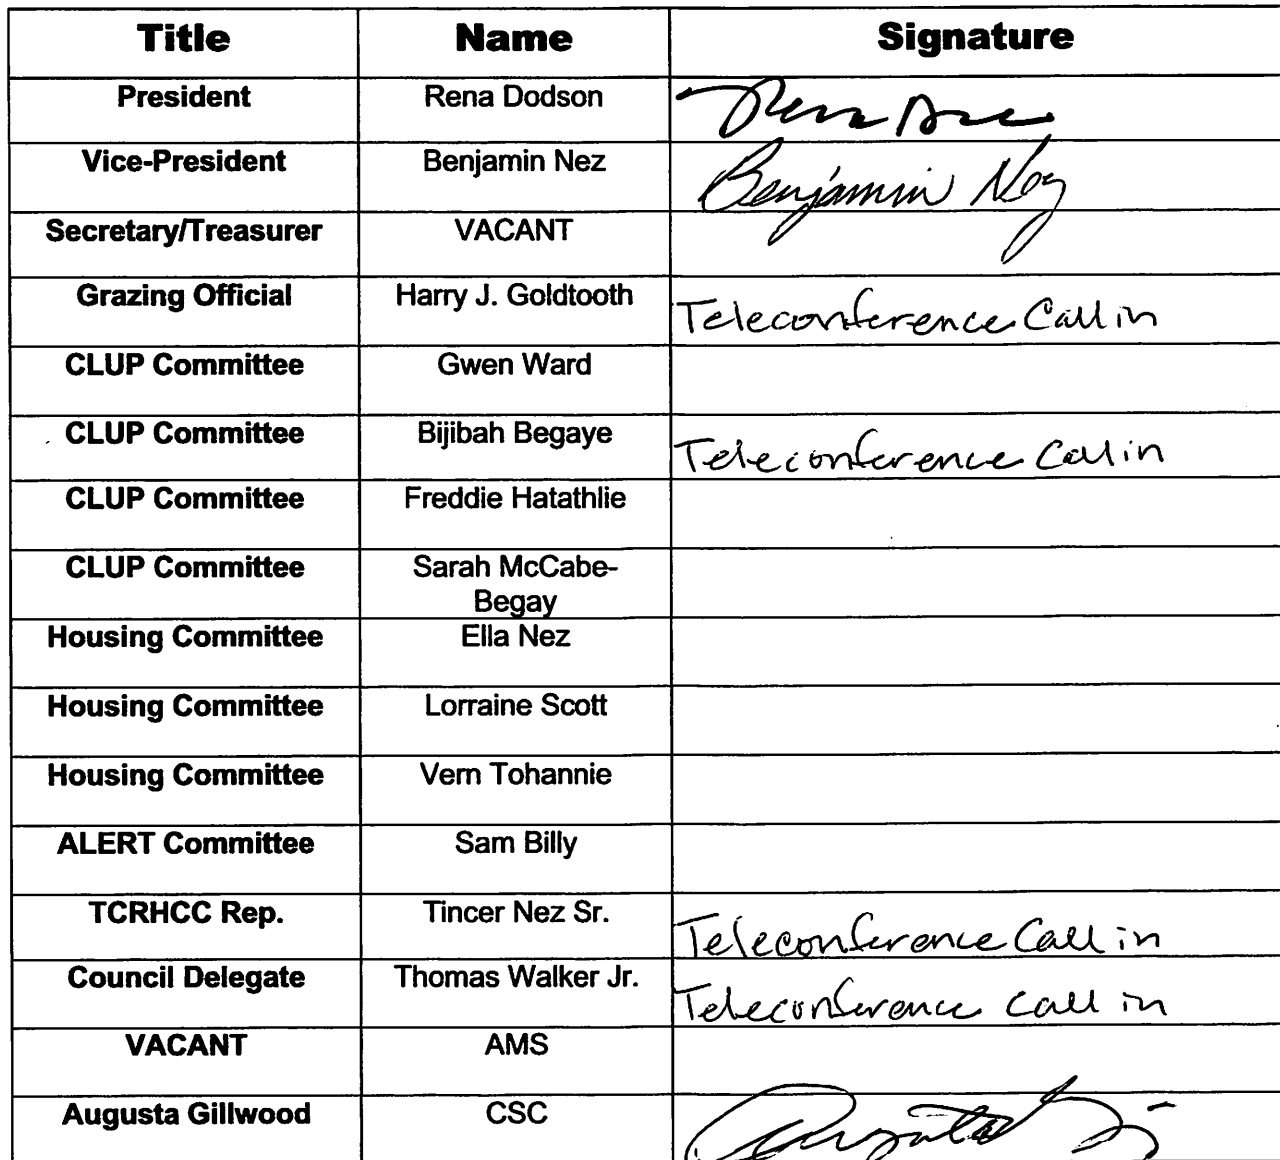 Title Name Signature
President Rena Dodson
Vice-President Benjamin Nez Benjamin Nez
Secretary/Treasurer VACANT
Grazing Official Harry J. Goldtooth Teleconference Call in
CLUP Committee Gwen Ward
CLUP Committee Bijibah Begaye Teleconference Call in
CLUP Committee Freddie Hatathlie
CLUP Committee Sarah McCabe-
Begay
Housing Committee Ella Nez
Housing Committee Lorraine Scott
Housing Committee Vern Tohannie
ALERT Committee Sam Billy
TCRHCC Rep. Tincer Nez Sr. Teleconference Call in
Council Delegate Thomas Walker Jr. Teleconference Call in
VACANT AMS
Augusta Gillwood CSC